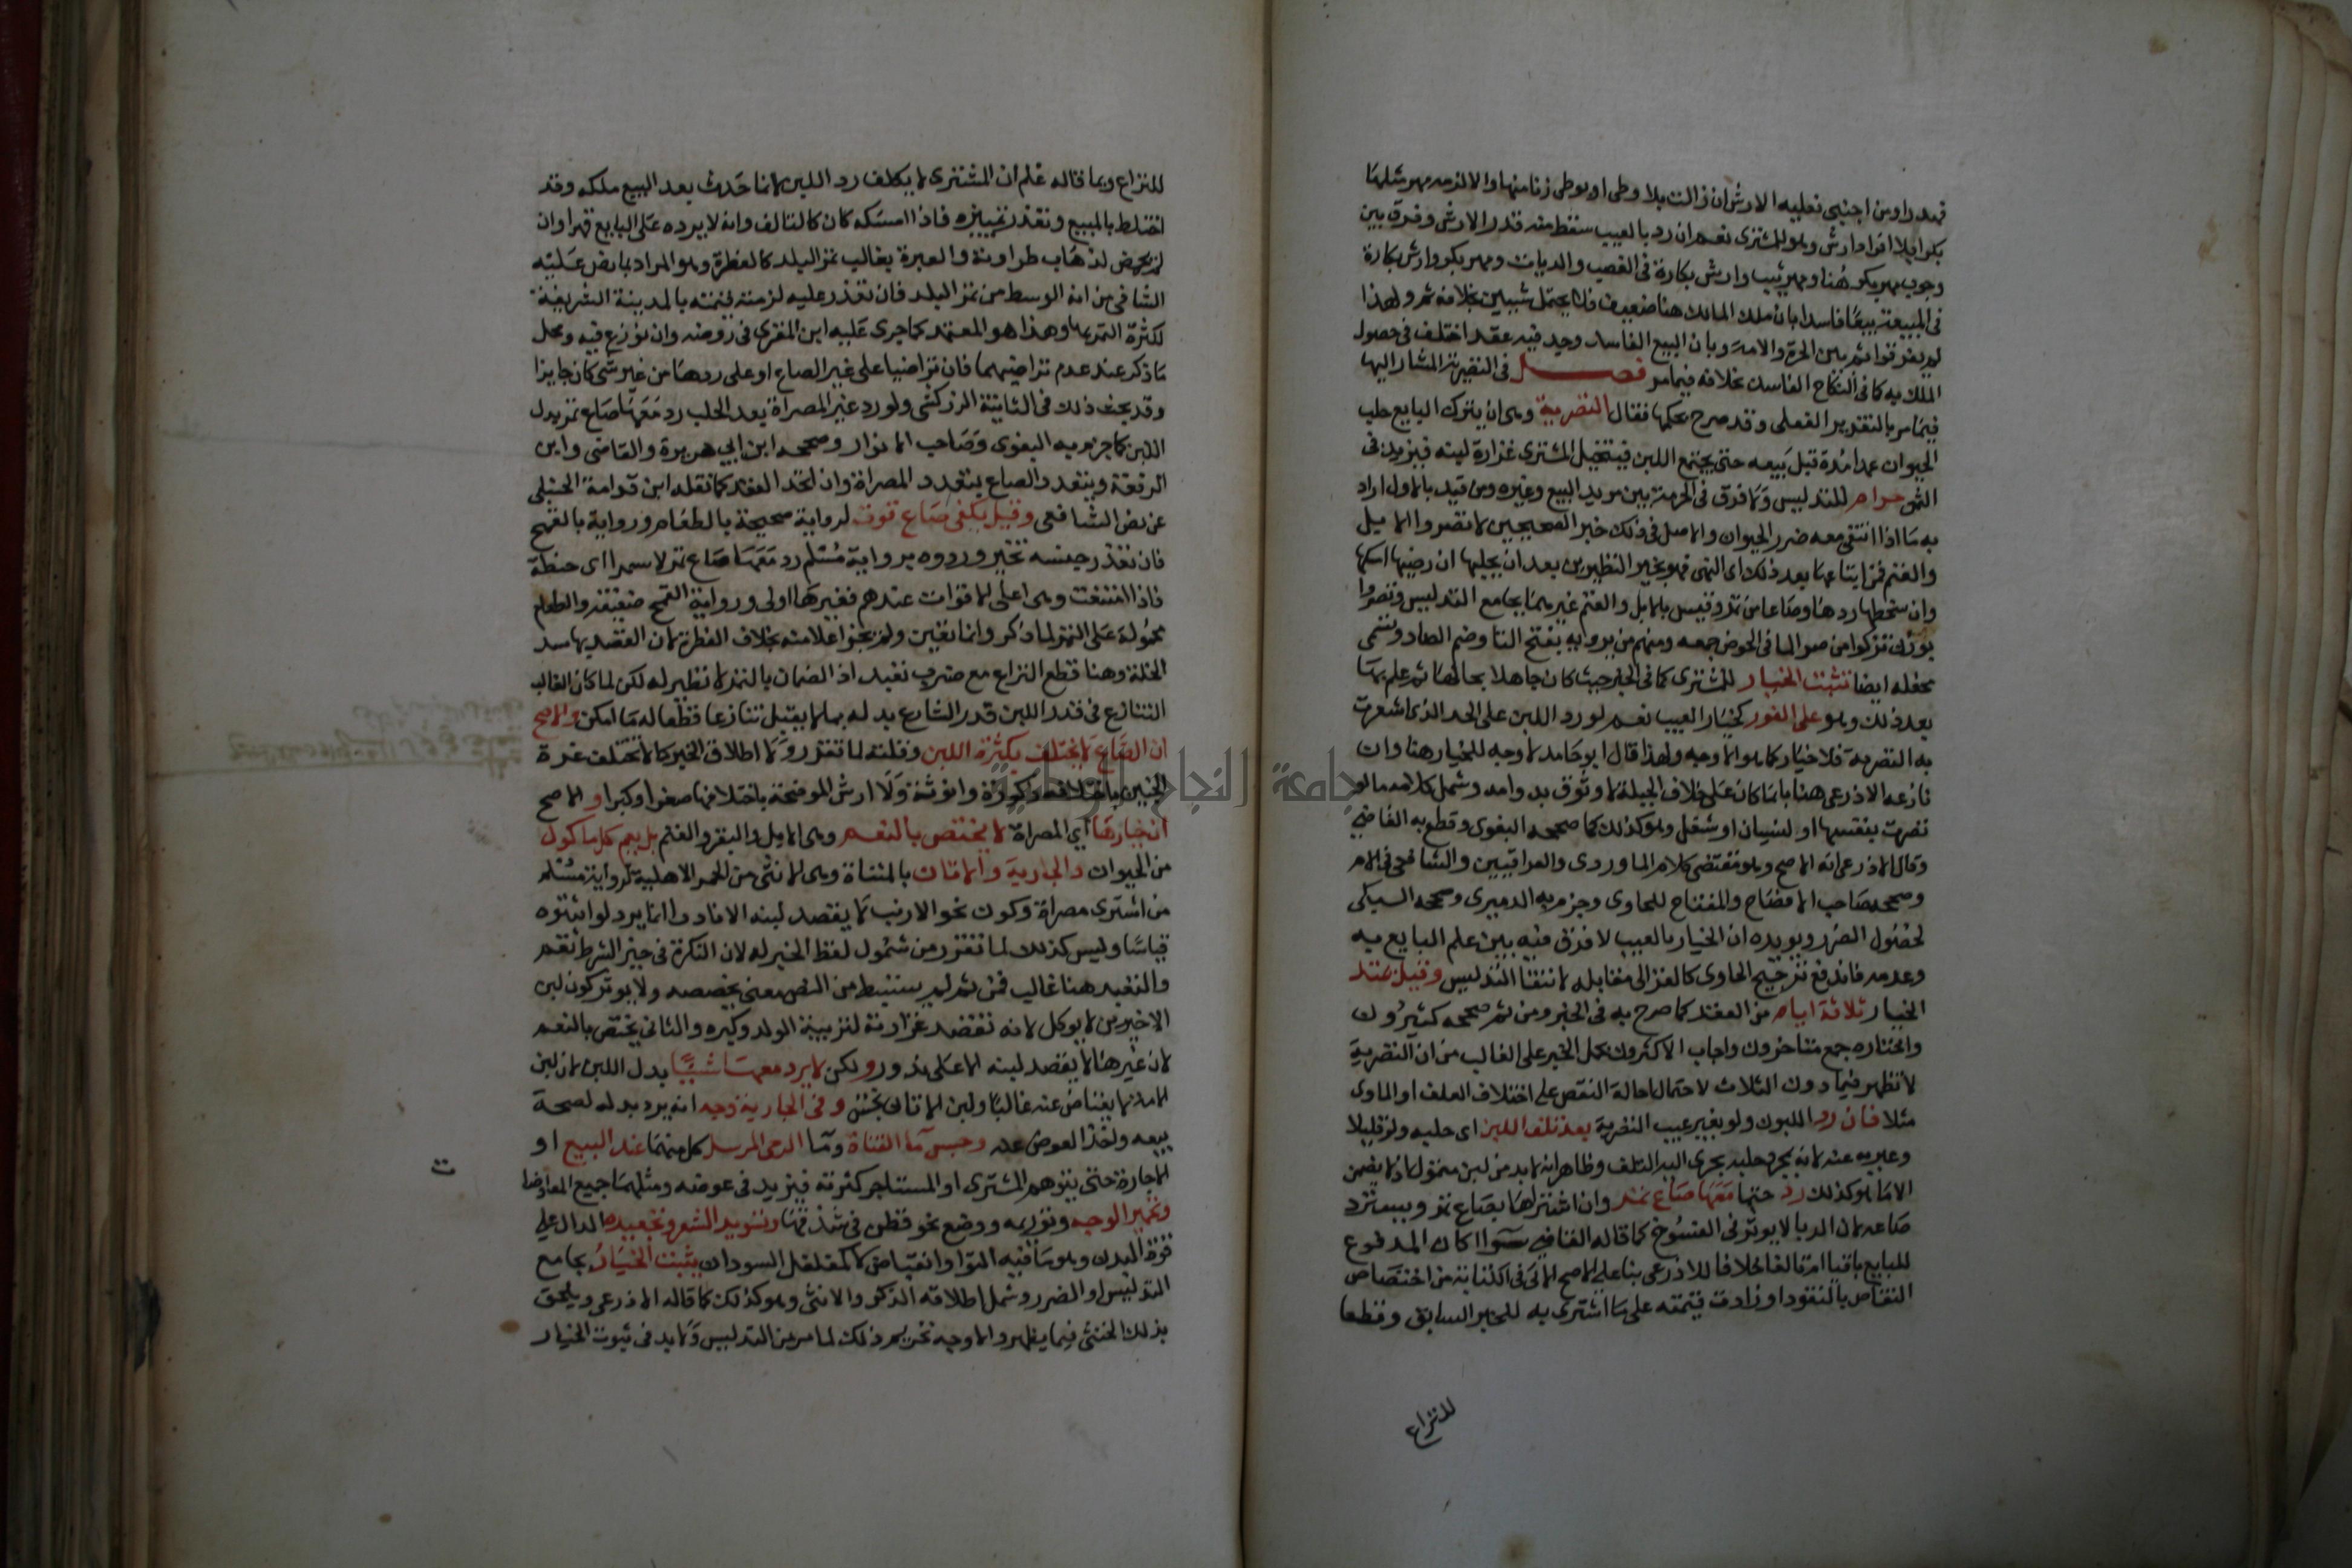 فهدر او من اجنبي فعليه الارش ان زالت بلا وطى او بوطى زنا منها والا لزمه مهر مثلها
بكرا بلا افراد ارش وهو للمشترى نعم ان رد بالعيب سقط منه قدر الارش وفرق بين
وجوب مهر بكر هنا ومهر ثيب وارش بكارة فى الغصب والديات ومهر بكر وارش بكارة
فى المبيعة بيعا فاسدا بان ملك المالك هنا ضعيف فلا يحتمل شيئين بخلافه ثم ولهذا
لم يفرقوا ثم بين الحرة والامة وبان البيع الفاسد وجد فيه عقد اختلف فى حصول
الملك به كما فى النكاح الفاسد بخلافه فيما مر فصل فى التغرير المشار اليها
فيما مر بالتغرير الفعلى وقد صرح بحكمها فقال التصرية وهى ان يترك البايع حلب
الحيوان عمدا مدة قبل بيعه حتى يجتمع اللبن فيتخيل المشترى غزارة لبنه فيزيد فى
الثمن حرام للتدليس ولا فرق فى الحرمة بين مريد البيع وغيره ومن قيد بالاول اراد
به ما اذا انتفى معه ضرر الحيوان والاصل فى ذلك خبر الصحيحين لا تصروا الابل
والغنم فمن ابتاعها بعد ذلك اى النهى فهو بخير النظرين بعد ان يحلبها ان رضيها امسكها
وان سخطها ردها وصاعا من تمر وقيس بالابل والغنم غيرهما بجامع التدليس وتصروا
بوزن تزكوا من صر الما فى الحوض جمعه ومنهم من يرويه بفتح التا وضم الصاد وتسمى
محفله ايضا تثبت الخيار للمشترى كما فى الخبر حيث كان جاهلا بحالها ثم علم بها
بعد ذلك وهو على الفور كخيار العيب نعم لو رد اللبن على الحد الذى اشعرت
به التصرية فلا خيار كما هو الاوجه ولهذا قال ابو حامد لا وجه للخيار هنا وان
نازعه الاذرعى هنا بان ما كان على خلاف الجبلة لا وثوق بدوامه وشمل كلامه ما لو
تصرت بنفسها او لنسيان او شغل وهو كذلك كما صححه البغوى وقطع به القاضى
وقال الاذرعى انه الاصح وهو مقتضى كلام الماوردى والعراقيين والشافعى فى الام
وصححه صاحب الافصاح والمفتاح للحاوى وجزم به الدميرى وصححه السبكى
لحصول الضرر ويويده ان الخيار بالعيب لا فرق فيه بين علم البايع به
وعدمه فاندفع ترجيح الحاوى كالغزالى مقابله لانتفا التدليس وقيل يمتد
الخيار ثلاثة ايام من العقد كما صرح به فى الخبر ومن ثم صححه كثيرون
واختاره جمع متاخرون واجاب الاكثرون بحمل الخبر على الغالب من ان التصرية
لا تظهر فيما دون الثلاث لاحتمال احالة النقص على اختلاف العلف او الماوى
مثلا فان رد اللبون ولو بغير عيب التصرية بعد تلف اللبن اى حلبه ولو قليلا
وعبر به عنه لانه بمجرد حلبه يجرى اليه التلف وظاهر انه لا بد من لبن متمول اذ لا يضمن
الا ما هو كذلك رد حتما معها صاع تمر وان اشتراها بصاع تمر ويسترد
صاعه لان الربا لا يوثر فى الفسوخ كما قاله القاضى سوا اكان المدفوع
للبايع باقيا ام تالفا خلافا للاذرعى بنا على الاصح الاتى فى الكتابة من اختصاص
التقاص بالنقود او زادت قيمته على ما اشترى به للخبر السابق وقطعا
للنزاع
للنزاع وبما قاله علم ان المشترى لا يكلف رد اللبن لان ما حدث بعد البيع ملكه وقد
اختلط بالمبيع وتعذر تمييزه فاذا امسكه كان كالتالف وانه لا يرده على البايع قهرا وان
لم يحمض لذهاب طراوته والعبرة بغالب تمر البلد كالفطرة وهو المراد بما نص عليه
الشافى من انه الوسط من تمر البلد فان تعذر عليه لزمته قيمته بالمدينة الشريفة
لكثرة التمر بها وهذا هو المعتمد كما جرى عليه ابن المقرى فى روضه وان نوزع فيه ومحل
ما ذكر عند عدم تراضيهما فان تراضيا على غير الصاع او على ردها من غير شى كان جايزا
وقد بحث ذلك فى الثانية الزركشى ولو رد غير المصراة بعد الحلب رد معها صاع تمر بدل
اللبن كما جزم به البغوى وصاحب الانوار وصححه ابن ابي هريرة والقاضى وابن
الرفعة ويتعدد الصاع بتعدد المصراة وان اتحد العقد كما نقله ابن قدامة الحنبلى
عن نص الشافعى وقيل يكفى صاع قوت لرواية صحيحة بالطعام ورواية بالقمح
فان تعذر جنسه تخير وردوه برواية مسلم رد معها صاع تمر لا سمرا اى حنطة
فاذا امتنعت وهى اعلى الاقوات عندهم فغيرها اولى ورواية القمح ضعيفة والطعام
محمولة على التمر لما ذكر وانما تعين ولم يجز اعلا منه بخلاف الفطرة لان القصد بها سد
الخلة وهنا قطع النزاع مع ضرب تعبد اذ الضمان بالتمر لا نظير له لكن لما كان الغالب
التنازع فى قدر اللبن قدر الشارع بدله بما لا يقبل تنازعا قطعا له ما امكن والاصح
ان الصاع لا يختلف بكثرة اللبن وقلته لما تقرر ولاطلاق الخبر كما لا تختلف غرة
الجنين باختلافه ذكورة وانوثة ولا ارش الموضحة باختلافها صغرا وكبرا والاصح
ان خيارها اي المصراة لا يختص بالنعم وهى الابل والبقر والغنم بل يعم كل ماكول
من الحيوان والجارية والاتان بالمثناة وهى الانثى من الحمر الاهلية لرواية مسلم
من اشترى مصراة وكون نحو الارنب لا يقصد لبنه الا نادرا انما يرد لو اثبتوه
قياسا وليس كذلك لما تقرر من شمول لفظ الخبر له لان النكرة فى حيز الشرط تعم
والتعبد هنا غالب فمن ثم لم يستنبط من النص معنى يخصصه ولا يوثر كون لبن
الاخيرين لا يوكل لانه تقصد غزارته لتربية الولد وكبره والثانى يختص بالنعم
لان غيرها لا يقصد لبنه الا على ندور ولكن لا يرد معهما شيئا بدل اللبن لان لبن
الامة لا يعتاض عنه غالبا ولبن الاتان نجس وفى الجارية وجه انه يرد بدله لصحة
بيعه واخذ العوض عنه وحبس ما القناة وما الرحى المرسل كل منهما عند البيع او
الاجارة حتى يتوهم المشترى او المستاجر كثرته فيزيد فى عوضه ومثلهما جميع المعاوضا
ت
وتحمير الوجه وتوريمه ووضع نحو قطن فى شدقها وتسويد الشعر وتجعيده الدال على
قوة البدن وهو ما فيه التوا وانقباض لا كمفلفل السودان يثبت الخيار بجامع
التدليس او الضرر وشمل اطلاقه الذكر والانثى وهو كذلك كما قاله الاذرعى ويلحق
بذلك الخنثى فيما يظهر والاوجه تحريم ذلك لما مر من التدليس ولا بد فى ثبوت الخيار
جامعة النجاح الوطنية